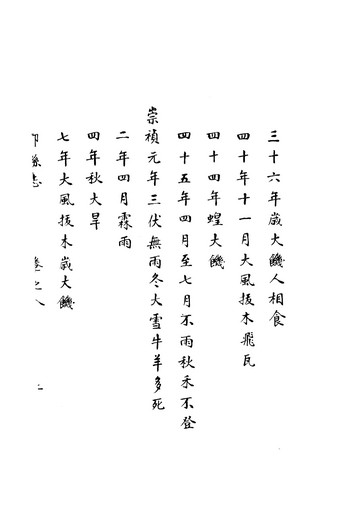 三十六年歲大饑人相食
四十年十一月大風拔木飛瓦
四十四年蝗大饑
四十五年四月至七月不雨秋禾不登
崇禎元年三伏無雨冬大雪牛羊多死
二年四月霖雨
四年秋大旱
七年大風拔木歲大饑
縣志 卷之八